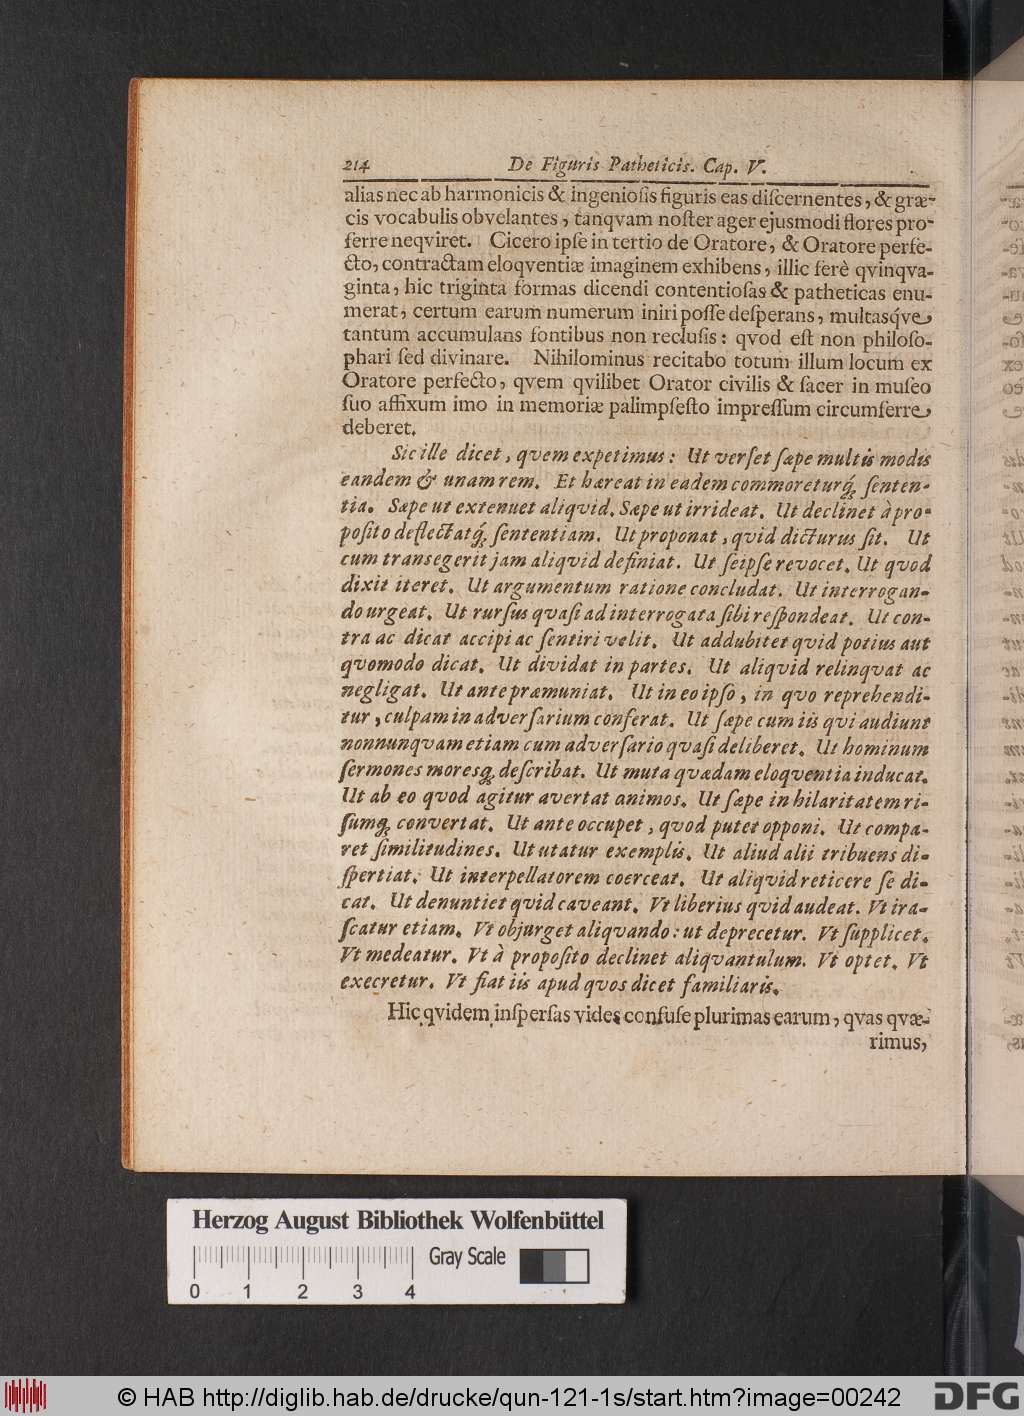 214 De Figuris Patheticis. Cap. V.
alias nec ab harmonicis & ingeniosis figuris eas discernentes, & græ-
cis vocabulis obvelantes, tanqvam noster ager ejusmodi flores pro-
ferre neqviret. Cicero ipse in tertio de Oratore, & Oratore perfe-
cto, contractam eloqventiæ imaginem exhibens, illic ferè qvinqva-
ginta, hic triginta formas dicendi contentiosas & patheticas enu-
merat, certum earum numerum iniri posse desperans, multasq́ve
tantum accumulans fontibus non reclusis: qvod est non philoso-
phari sed divinare. Nihilominus recitabo totum illum locum ex
Oratore perfecto, qvem qvilibet Orator civilis & sacer in museo
suo affixum imo in memoriæ palimpsesto impressum circumferre
deberet.
Sic ille dicet, qvem expetimus: Ut verset sæpe multis modis
eandem & unam rem. Et hæreat in eadem commoreturq́; senten-
tia. Sæpe ut extenuet aliqvid. Sæpe ut irrideat. Ut declinet à pro-
posito deflectatq́; sententiam. Ut proponat, qvid dicturus sit. Ut
cum transegerit jam aliqvid definiat. Ut seipse revocet. Ut qvod
dixit iteret. Ut argumentum ratione concludat. Ut interrogan-
do urgeat. Ut rursus qvasi ad interrogata sibi respondeat. Ut con-
tra ac dicat accipi ac sentiri velit. Ut addubitet qvid potius aut
qvomodo dicat. Ut dividat in partes. Ut aliqvid relinqvat ac
negligat. Ut ante præmuniat. Ut in eo ipso, in qvo reprehendi-
tur, culpam in adversarium conferat. Ut sæpe cum iis qvi audiunt
nonnunqvam etiam cum adversario qvasi deliberet. Ut hominum
sermones moresq; describat. Ut muta qvædam eloqventia inducat.
Ut ab eo qvod agitur avertat animos. Ut sæpe in hilaritatem ri-
sumq; convertat. Ut ante occupet, qvod putet opponi. Ut compa-
ret similitudines. Ut utatur exemplis. Ut aliud alii tribuens di-
spertiat. Ut interpellatorem coerceat. Ut aliqvid reticere se di-
cat. Ut denuntiet qvid caveant. Vt liberius qvid audeat. Vt ira-
scatur etiam. Vt objurget aliqvando: ut deprecetur. Vt supplicet.
Vt medeatur. Vt à proposito declinet aliqvantulum. Vt optet. Vt
execretur. Vt fiat iis apud qvos dicet familiaris.
Hic qvidem inspersas vides confuse plurimas earum, qvas qvæ-
rimus,
Herzog August Bibliothek Wolfenbüttel
Gray Scale
0 1 2 3 4
© HAB http://diglib.hab.de/drucke/qun-121-1s/start.htm?image=00242
DFG